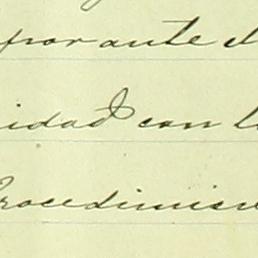 por ante el
idad con l
Procedimien